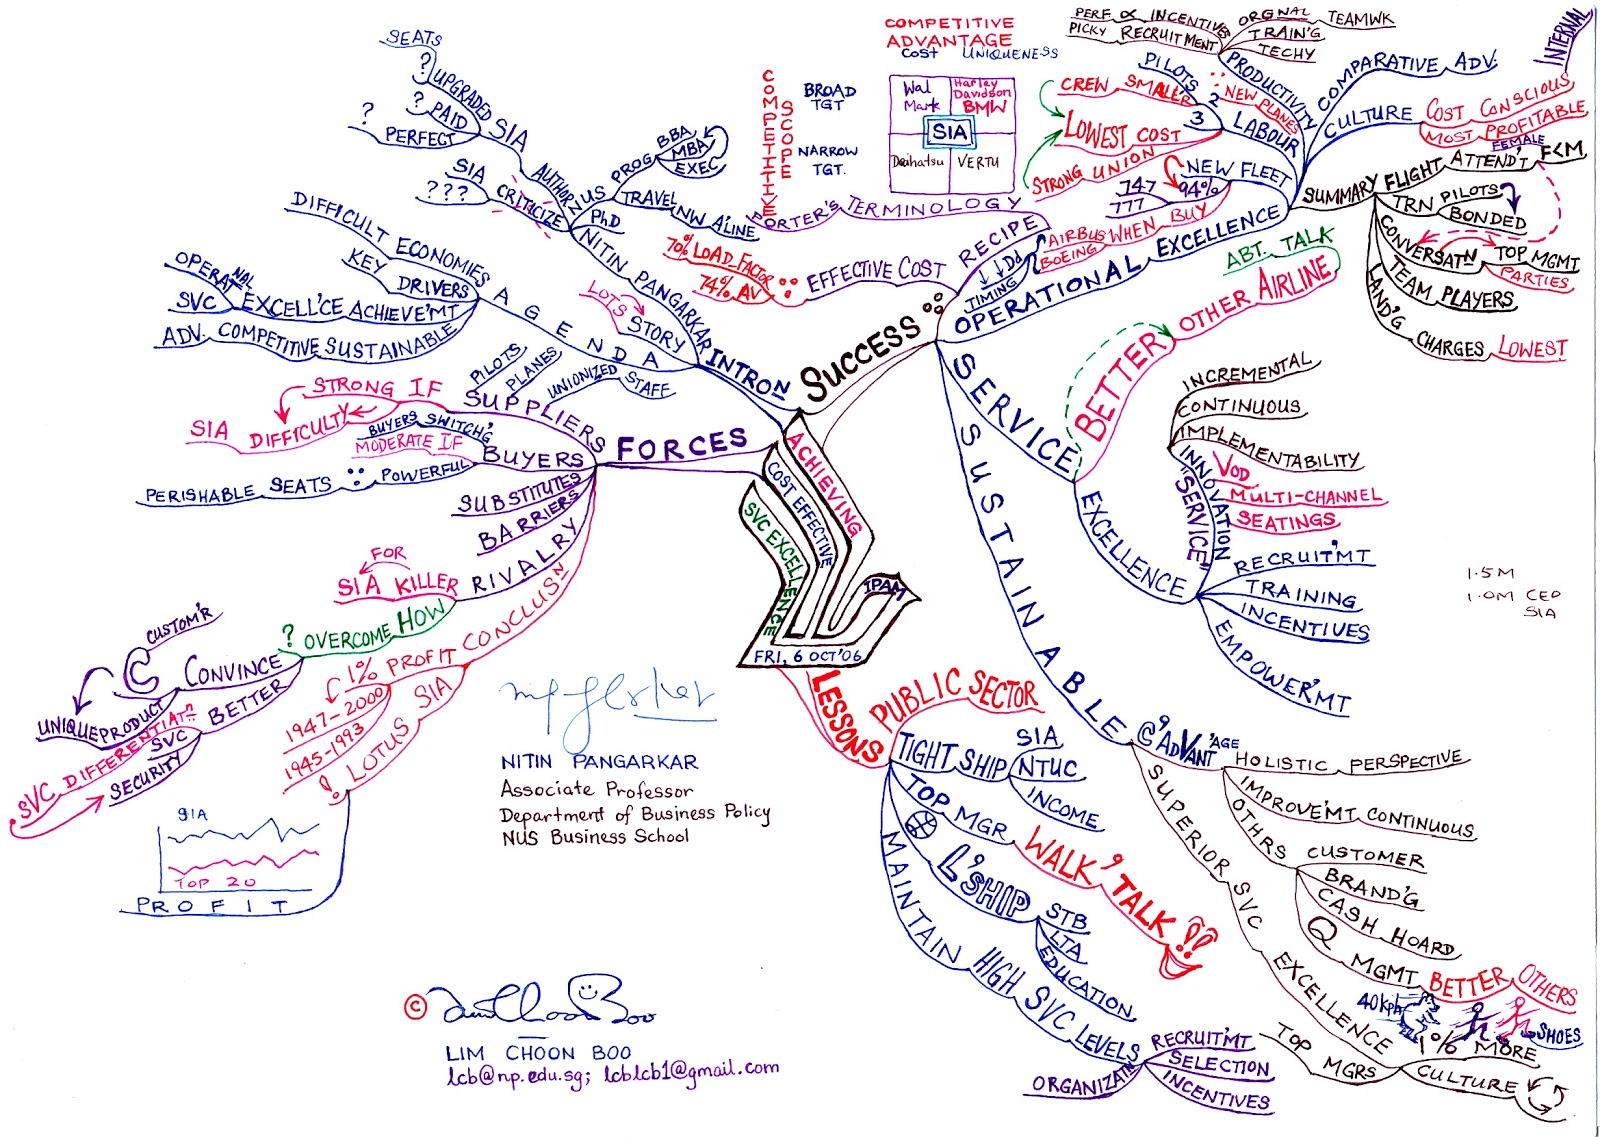 SEATS
?
UPGRADED
? PAID
? PERFECT
SIA
SIA
???
CRITICIZE
AUTHOR
NUS
PROG
BBA
MBA
EXEC
TRAVEL
NW A'LINE
PhD
NITIN PANGARKAR
LOTS
STORY
INTRON
DIFFICULT ECONOMIES
KEY DRIVERS
OPERATNAL
SVC EXCELL'CE ACHIEVE'MT
ADV. COMPETITIVE SUSTAINABLE
AGENDA
COMPETITIVE
ADVANTAGE
COST UNIQUENESS
COMPETITIVE
SCOPE
BROAD
TGT
NARROW
TGT.
Wal
Mark
Harley
Davidson
BMW
SIA
Daihatsu
VERTU
PORTER'S TERMINOLOGY
RECIPE
70% LOAD FACTOR
74% AV
EFFECTIVE COST
SUCCESS
PERF INCENTIVES
PICKY RECRUITMENT
ORGNAL TEAMWK
TRAIN'G
TECHY
PRODUCTIVITY
NEW PLANES
PILOTS
2
3
CREW SMALL'R
LOWEST COST
STRONG UNION
LABOUR
COMPARATIVE ADV.
CULTURE
INTERNAL
COST CONSCIOUS
MOST PROFITABLE
NEW FLEET
94%
747
777
AIRBUS
BOEING
WHEN BUY
TIMING
OPERATIONAL EXCELLENCE
SUMMARY
FLIGHT ATTEND'T
FEMALE
F<M
TRN PILOTS
BONDED
CONVERSATN
TOP MGMT
PARTIES
TEAM PLAYERS
LAND'G CHARGES LOWEST
ABT. TALK
OTHER AIRLINE
BETTER
SERVICE
EXCELLENCE
INCREMENTAL
CONTINUOUS
IMPLEMENTABILITY
INNOVATION
"SERVICE"
VOD
MULTI-CHANNEL
SEATINGS
RECRUIT'MT
TRAINING
INCENTIVES
EMPOWER'MT
1.5M
1.0M CEO
SIA
STRONG IF
SIA DIFFICULTY
PILOTS
PLANES
UNIONIZED STAFF
SUPPLIERS
BUYERS SWITCH'G
MODERATE IF
BUYERS
PERISHABLE SEATS
POWERFUL
FORCES
SUBSTITUTES
BARRIERS
RIVALRY
FOR
SIA KILLER
? OVERCOME HOW
CUSTOM'R
C
CONVINCE
UNIQUE PRODUCT
SVC DIFFERENTIATN
SVC
BETTER
SECURITY
CONCLUSN
1% PROFIT
1947-2000
1945-1993
! LOTUS SIA
SIA
TOP 20
PROFIT
ACHIEVING
COST EFFECTIVE
SVC EXCELLENCE
IPAM
FRI, 6 OCT'06
NITIN PANGARKAR
Associate Professor
Department of Business Policy
NUS Business School
LESSONS
PUBLIC SECTOR
TIGHT SHIP
SIA
NTUC
INCOME
TOP MGR
WALK' TALK!!
L'SHIP
STB
LTA
EDUCATION
MAINTAIN HIGH SVC LEVELS
RECRUIT'MT
SELECTION
INCENTIVES
ORGANIZATN
SUSTAINABLE
@'ADVANT'AGE
HOLISTIC PERSPECTIVE
IMPROVE'MT CONTINUOUS
OTHRS
CUSTOMER
BRAND'G
CASH HOARD
Q MGMT
BETTER OTHERS
40kph
SHOES
1% MORE
SUPERIOR SVC EXCELLENCE
TOP MGRS
CULTURE
©
LIM CHOON BOO
lcb@np.edu.sg; lcblcb1@gmail.com